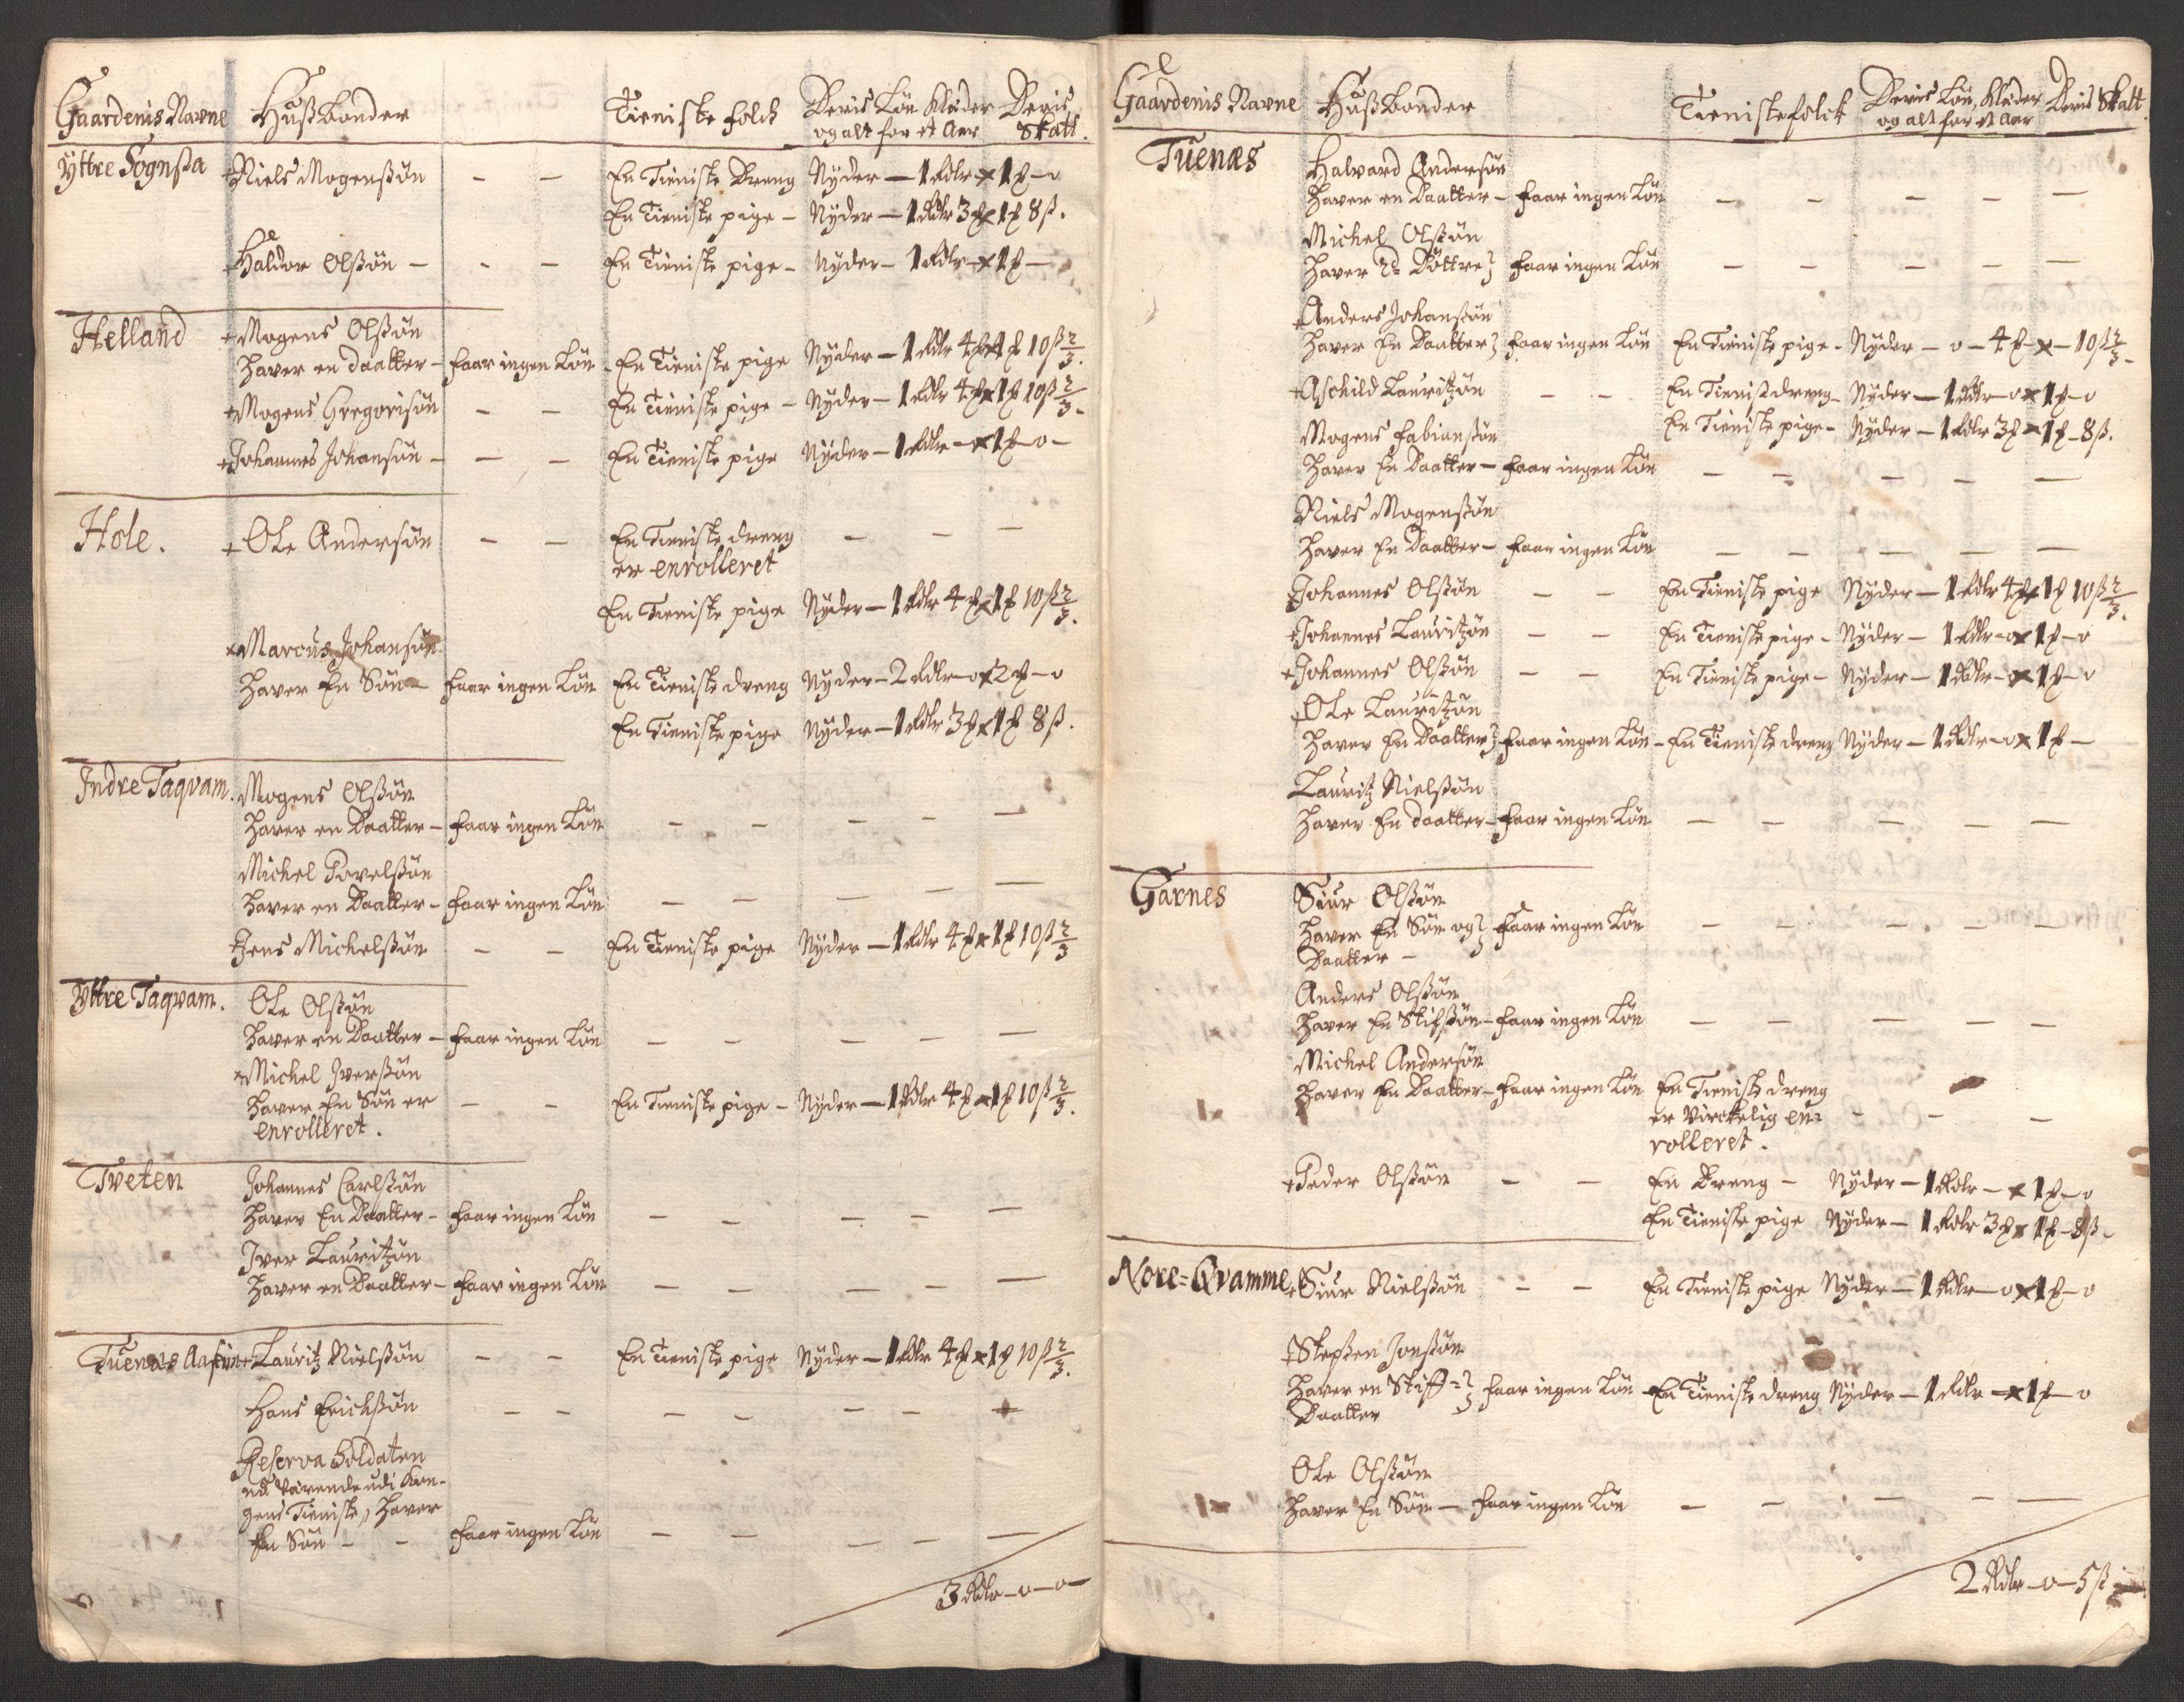 Gaardenis Navne Hußbonder Tieniste folck Deris Løn Klæder Deris
og alt for et Aar Skatt.
Yttre Sognsta Niels Mogensøn - - En Tieniste Dreng Nyder - 1 Rdlr x 1 - o
En Tieniste pige - Nyder - 1 Rdlr 3 x 1 8 ß.
Haldor Olsøn - - - En Tieniste pige - Nyder - 1 Rdlr - x 1 -
Helland Mogens Olsøn
haver en daatter - faar ingen Løn - En Tieniste pige Nyder - 1 Rdlr 4 x 1 10 ß 2/3.
Mogens Gregorisøn - - En Tieniste pige - Nyder - 1 Rdlr 4 x 1 10 ß 2/3.
Johannes Johansøn - - - En Tieniste pige Nyder - 1 Rdlr - x 1 - o -
Hole. Ole Andersøn - - En Tieniste dreng - - -
er enrolleret
En Tieniste pige Nyder - 1 Rdlr 4 x 1 10 ß 2/3.
Marcus Johansøn
haver En Søn - faar ingen Løn En Tieniste dreng Nyder - 2 Rdlr - o x 2 - o
En Tieniste pige Nyder - 1 Rdlr 3 x 1 8 ß.
Indre Taqvam. Mogens Olsøn
haver en Daatter - faar ingen Løn - - - - -
Michel Povelsøn
haver en Daatter - faar ingen Løn - - - - -
Jens Michelsøn - - En Tieniste pige Nyder - 1 Rdlr 4 x 1 10 ß 2/3
Yttre Taqvam. Ole Olsøn
haver en Daatter - faar ingen Løn - - - - -
Michel Iversøn
haver En Søn er - - En Tieniste pige - Nyder - 1 Rdlr 4 x 1 10 ß 2/3.
enrolleret.
Tveten Johannes Carlsøn
haver En Daatter - faar ingen Løn - - - - -
Iver Lauritzøn
haver en Daatter - faar ingen Løn - - - - -
Tuenæs Lauritz Nielsøn - - En Tieniste pige Nyder - 1 Rdlr 4 x 1 10 ß 2/3.
Hans Erichsøn - - - - - - -
Reserva Soldaten
nu værende udi Kon-
gens Tieniste, haver
En Søn - - faar ingen Løn - - - - -
3 Rdlr - o - o -
Gaardenis Navne Hußbonder Tienistefolck Deris Løn, Klæder Deris Skatt.
og alt for et Aar
Tuenæs Halvard Andersøn
haver en Daatter - faar ingen Løn - - - - -
Michel Olsøn
haver 2de Døttre faar ingen Løn - - - - -
Anders Johansøn
haver En Daatter faar ingen Løn En Tieniste pige - Nyder - o - 4 - x - 10 ß 2/3 -
Aschild Lauritzøn - - En Tienistdreng - Nyder - 1 Rdlr - o x 1 - o
En Tieniste pige - Nyder - 1 Rdlr 3 x 1 - 8 ß.
Mogens Fabiansøn
haver En Daatter - faar ingen Løn - - - - -
Niels Mogensøn
haver En Daatter - faar ingen Løn - - - - -
Johannes Olsøn - - En Tieniste pige Nyder - 1 Rdlr 4 x 1 10 ß 2/3.
Johannes Lauritzøn - - En Tieniste pige - Nyder - 1 Rdlr - o x 1 - o
Johannes Olsøn - - En Tieniste pige - Nyder - 1 Rdlr - o x 1 - o
Ole Lauritzøn
haver En Daatter faar ingen Løn - En Tieniste dreng Nyder - 1 Rdlr - o x 1 -
Lauritz Nielsøn
haver En daatter - faar ingen Løn - - - - -
Garnes Siur Olsøn
haver En Søn og faar ingen Løn - - - - -
Daatter -
Anders Olsøn
haver En Stifsøn - faar ingen Løn - - - - -
Michel Andersøn
haver En Daatter - faar ingen Løn En Tieniste dreng
er Virckelig en= - - -
rolleret.
Peder Olsøn - - En Dreng - Nyder - 1 Rdlr - x 1 - o
En Tieniste pige Nyder - 1 Rdlr 3 x 1 - 8 ß -
Nore=Qvamme Siur Nielsøn - - En Tieniste pige Nyder - 1 Rdlr - o x 1 - o
Stephen Jonsøn
haver en Stiff= faar ingen Løn - En Tieniste dreng Nyder - 1 Rdlr - x 1 - o
Daatter
Ole Olsøn
haver En Søn - faar ingen Løn - - - - -
2 Rdlr - o - 5 ß